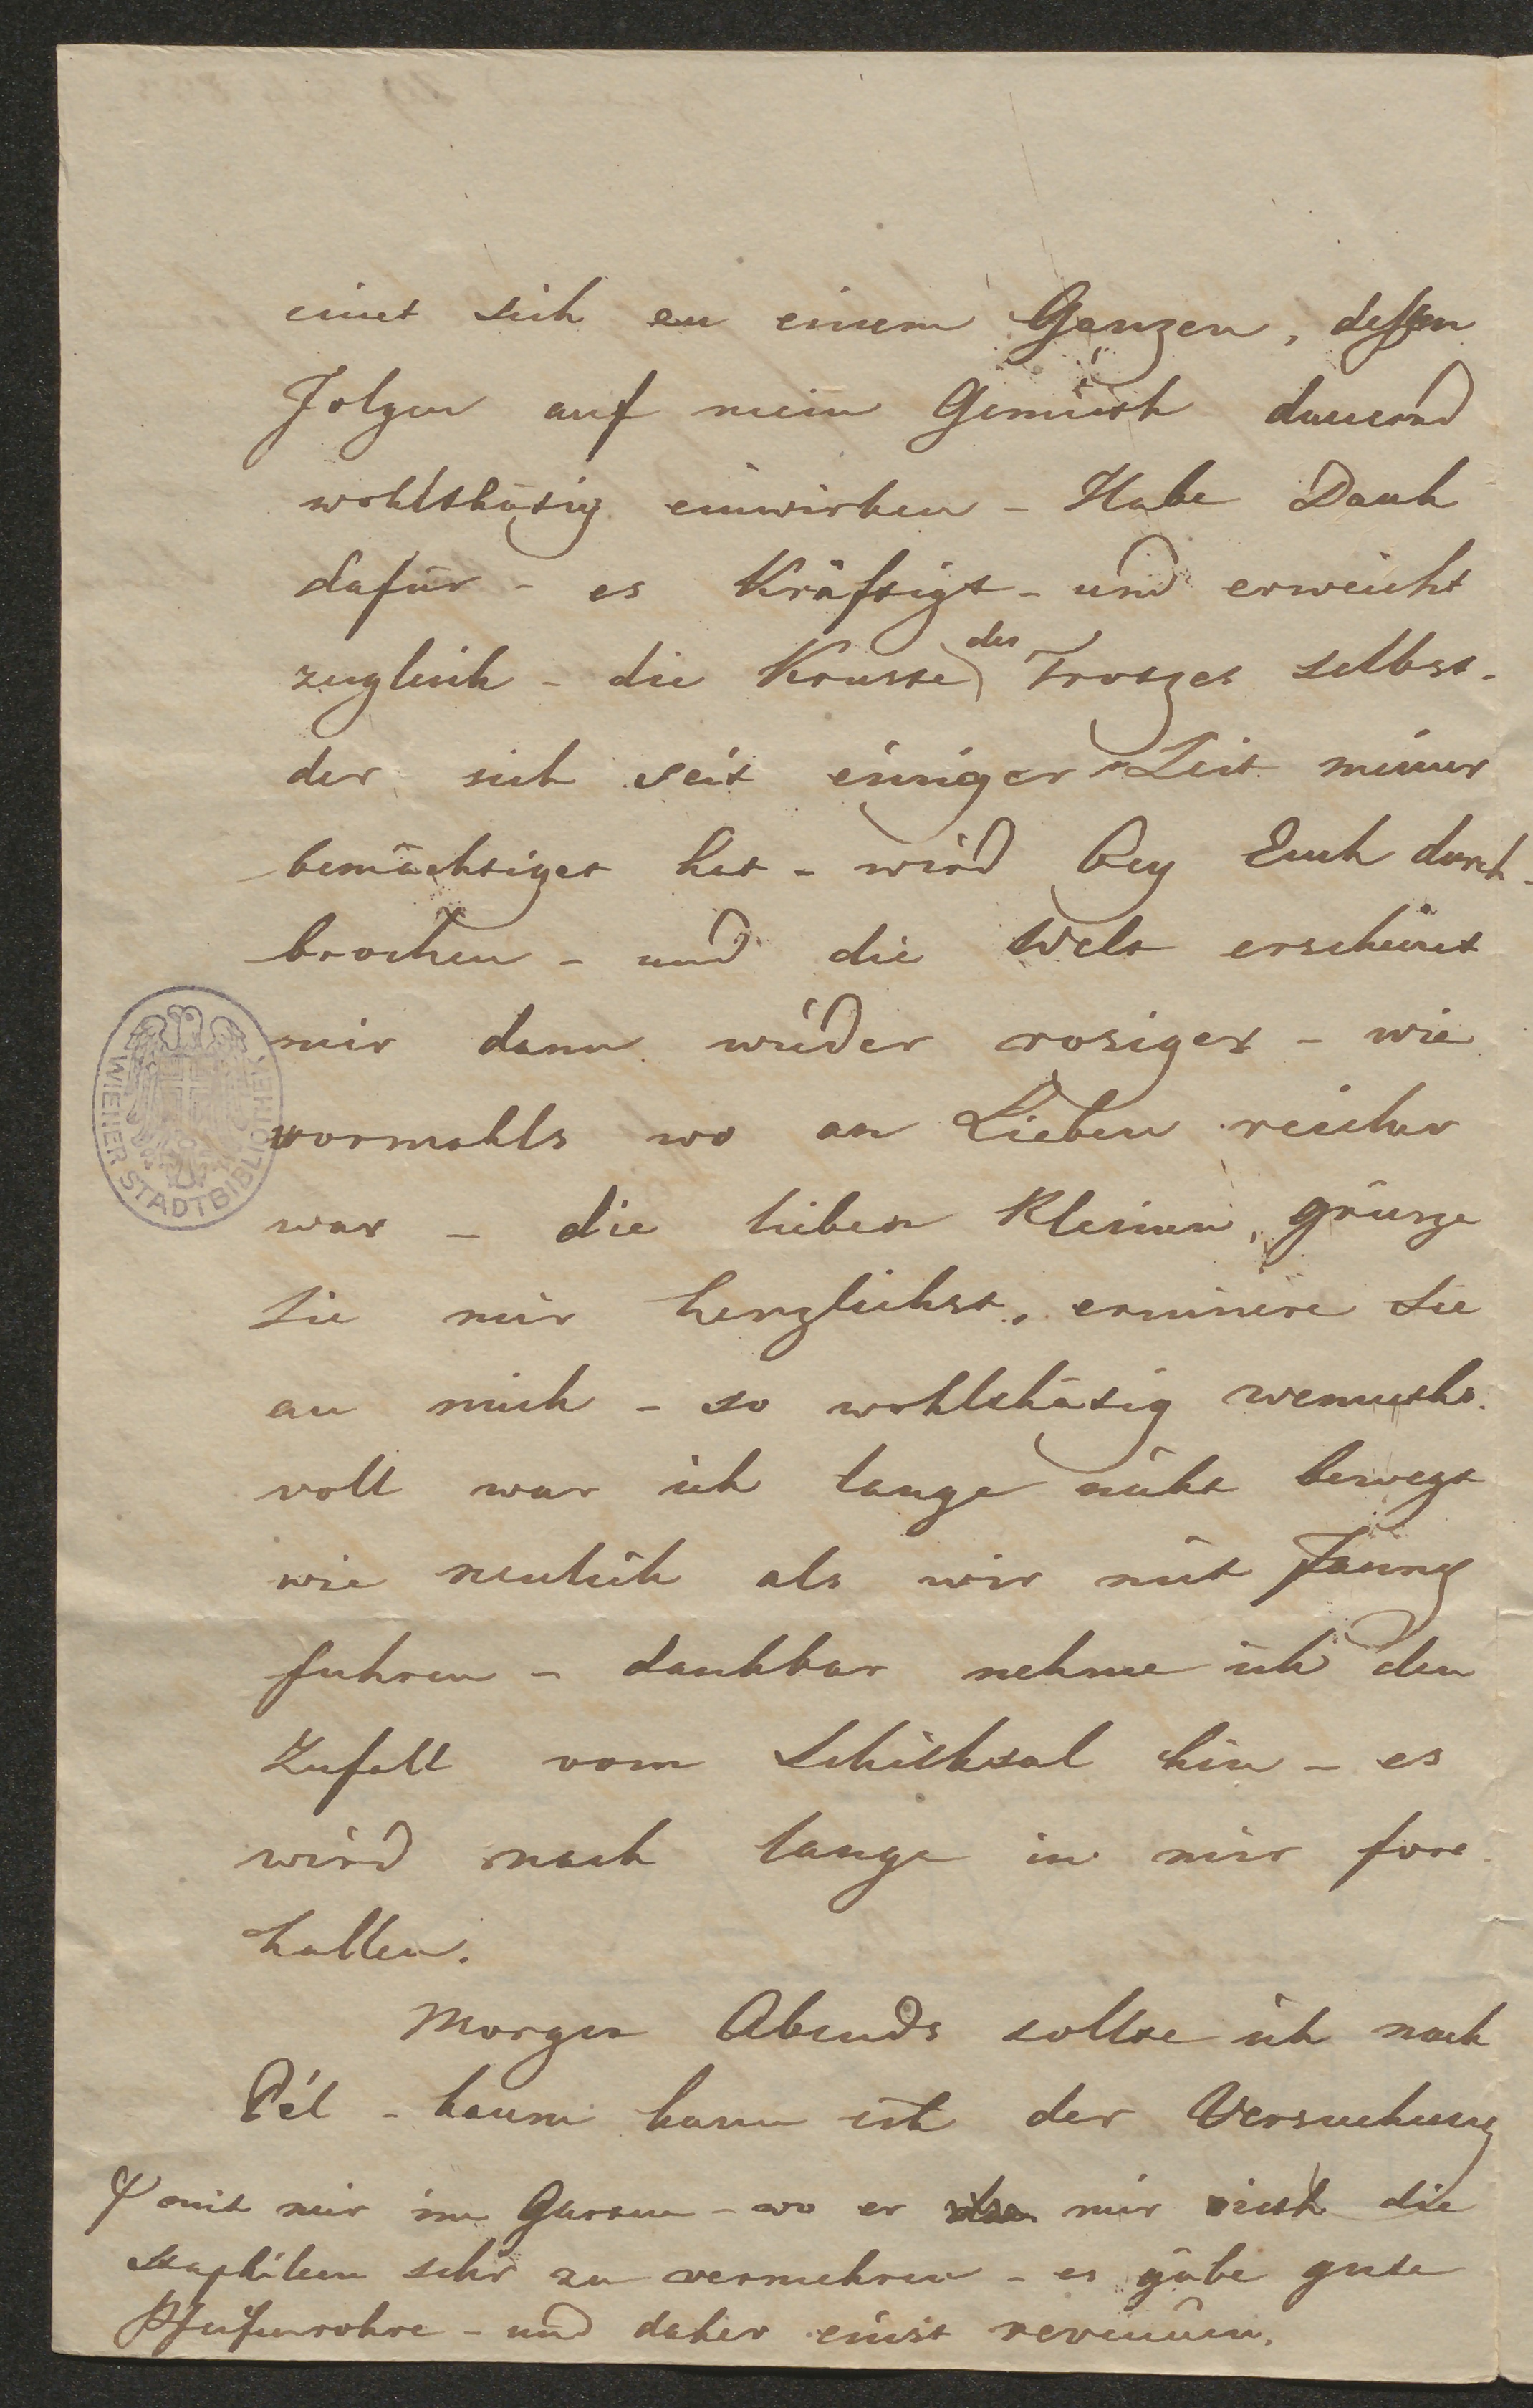 einet sich zu einem Ganzen, dessen
Folgen auf mein Gemüth dauernd
wohlthätig einwirken - Habe Dank
dafür - es Kräftigt - und erweicht
zugleich - die Kruste des Trotzes selbst -
der sich seit einiger Zeit meiner
bemächtiget hat - wird bey Euch durch-
brochen - und die Welt erscheinet
mir dann wieder rosiger - wie
vormahls wo an Lieben reicher
war - die lieben Kleinen, grüsze
Sie mir herzlichst, erinnere Sie
an mich - so wohlthätig wemuths-
voll war ich lange nicht bewegt
wie neulich als wir mit Fanny
fuhren - dankbar nehme ich den
Zufall vom Schicksal hin - es
wird noch lange in mir fort
hallen.
Morgen Abends sollte ich nach
Pél - kaum kann ich der Versuchung
mit mir im Garten - wo er mir rieth die
Staphileen sehr zu vermehren - es gäbe gute
Pfeifenrohre - und daher einst revenüen.
WIENER STADTBIBLIOTHEK